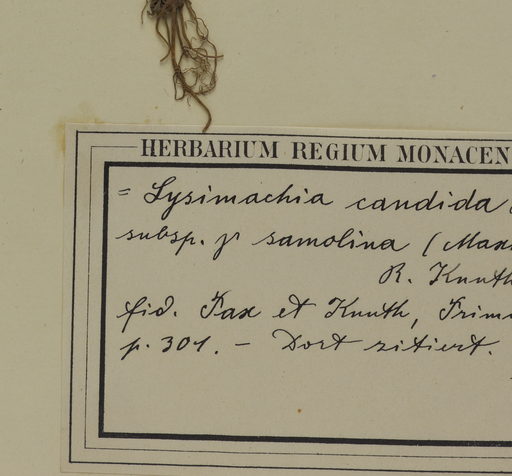 HERBARIUM REGIUM MONACEN
= Lysimachia candida
subsp. γ samolina (Max
R. Knuth
fid. Pax et Knuth, Prim
p. 301. - Dort zitiert.